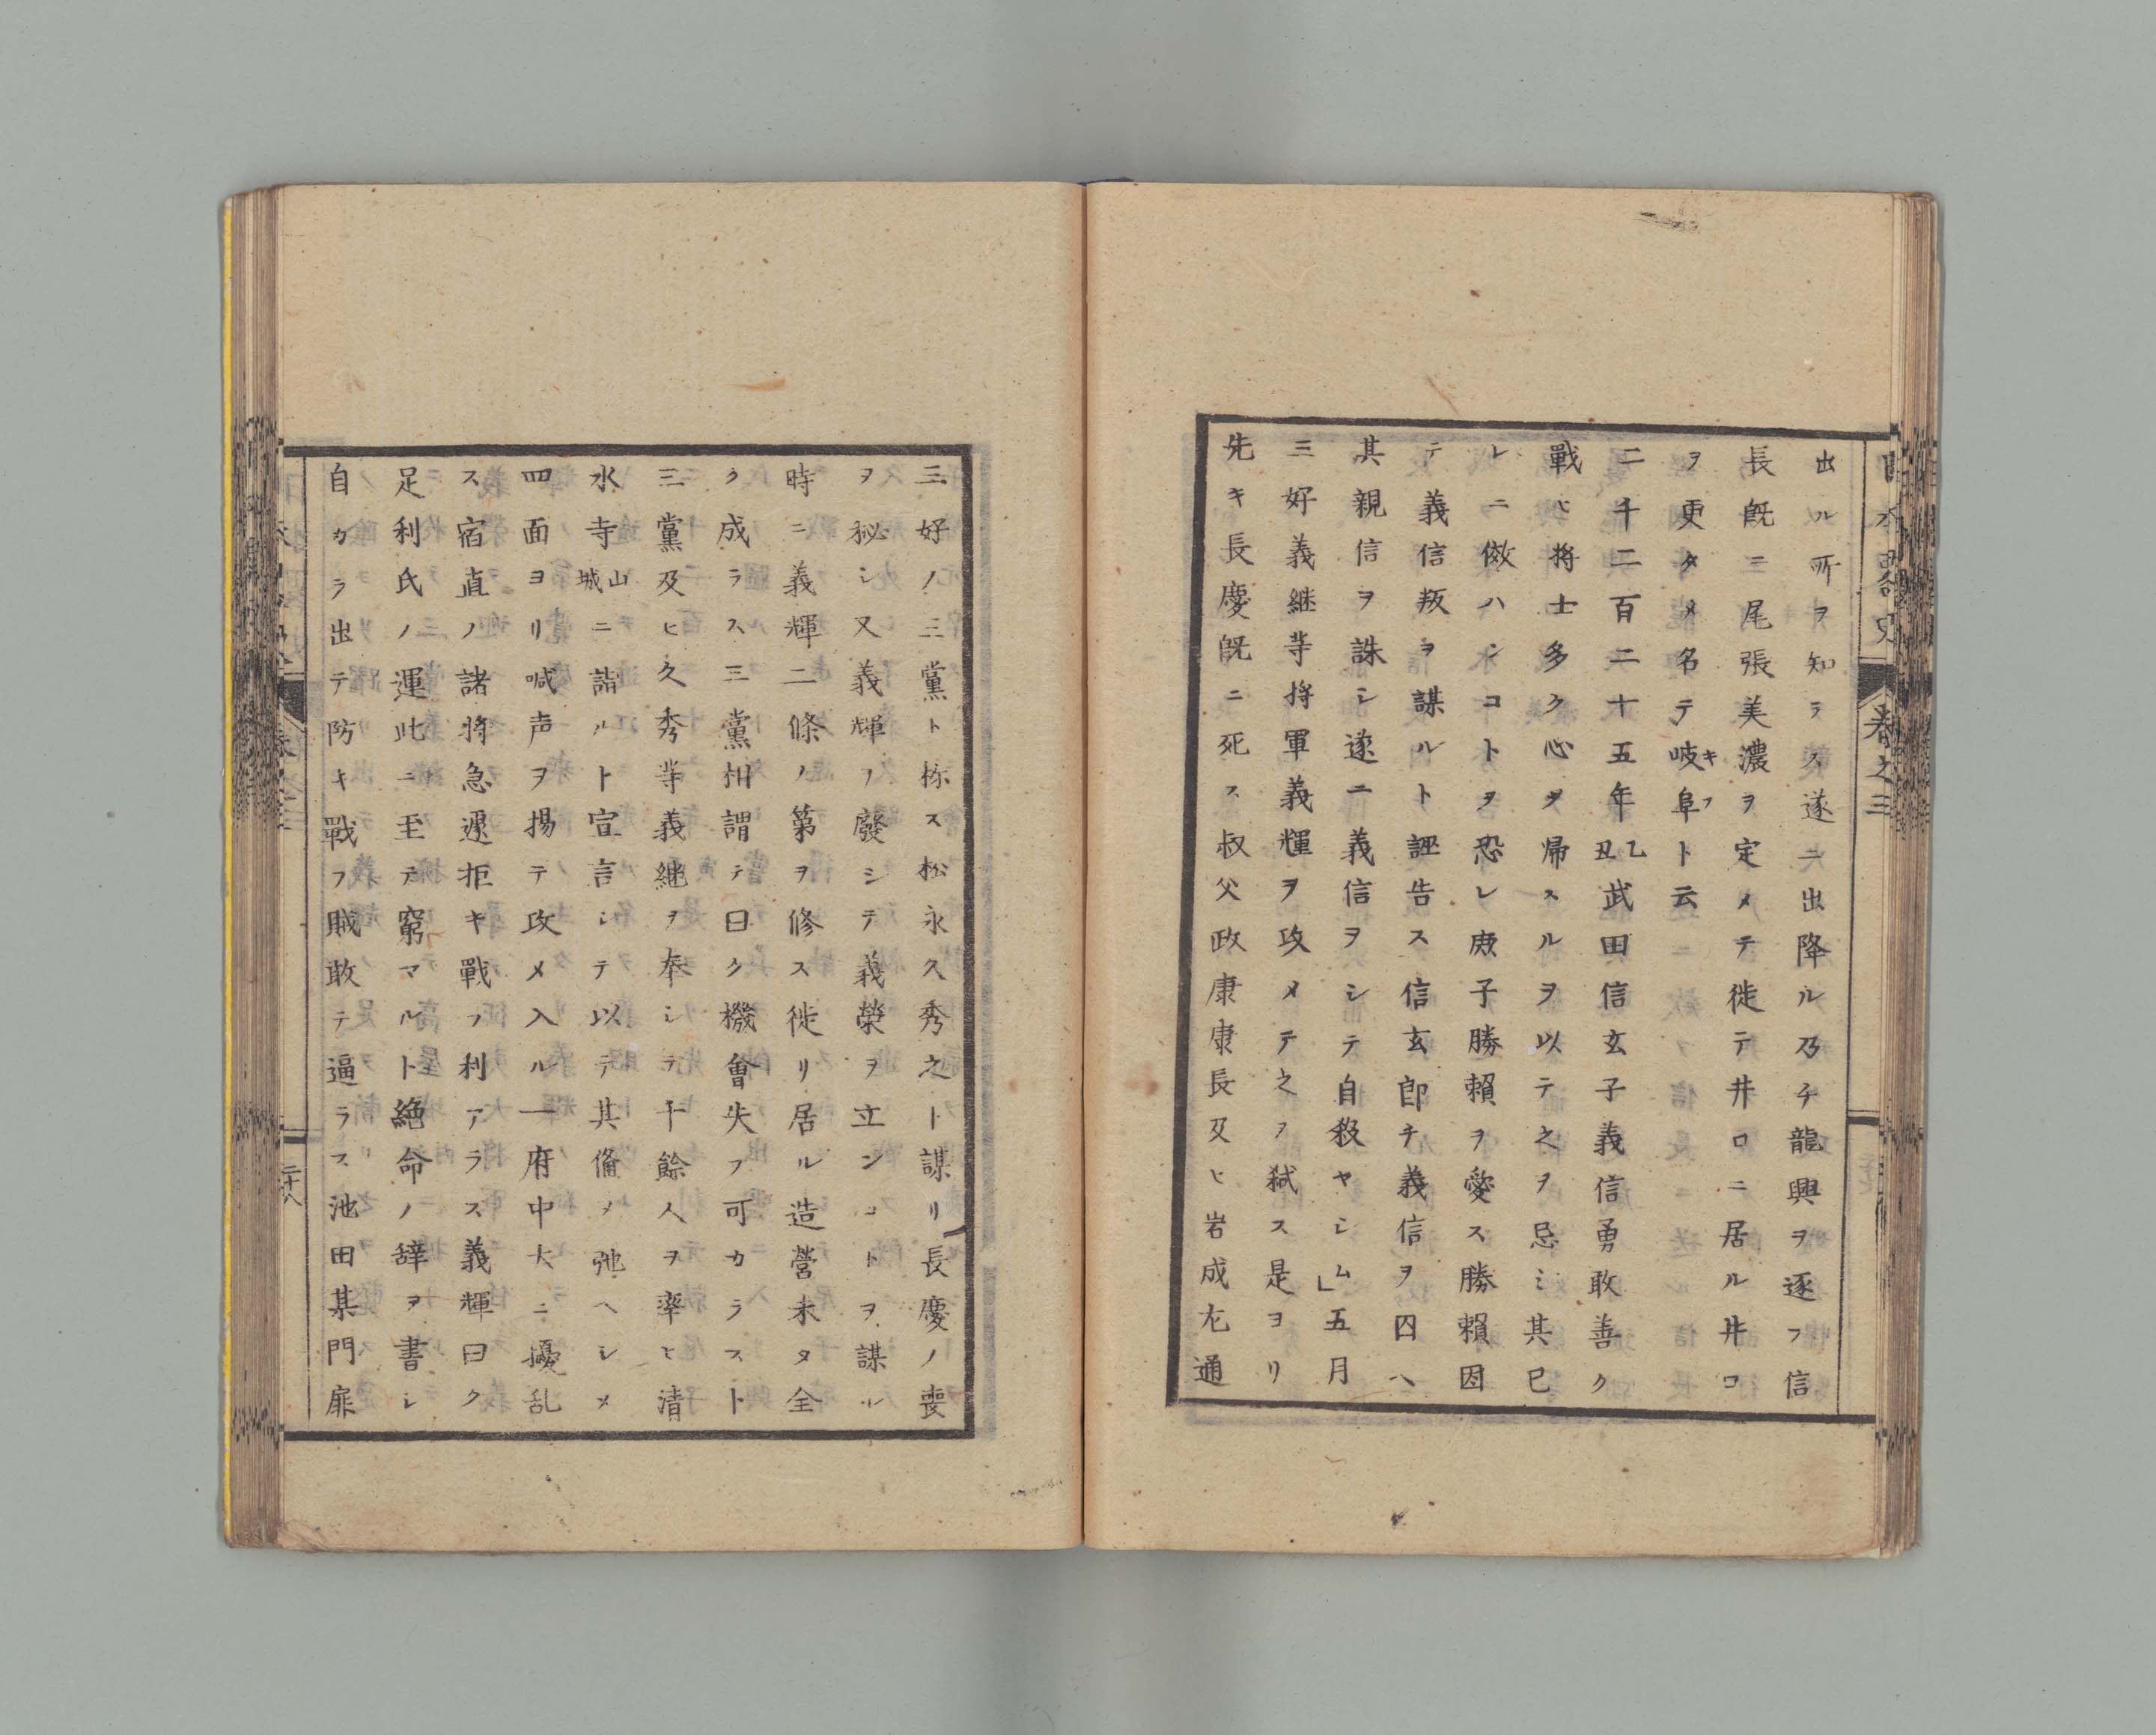 日本畧史 巻之三
出ル所ヲ知ラス遂ニ出降ル乃チ龍興ヲ逐フ信
長既ニ尾張美濃ヲ定メテ徙テ井口ニ居ル井口
ヲ更タメ名テ岐阜キフト云
二千二百二十五年乙丑武田信玄子義信勇敢善ク
戰ヒ將士多ク心ヲ帰スルヲ以テ之ヲ忌ミ其己
レニ傚ハンコトヲ恐レ庶子勝頼ヲ愛ス勝頼因
テ義信叛ヲ謀ルト誣告ス信玄即チ義信ヲ囚ヘ
其親信ヲ誅シ遂ニ義信ヲシテ自殺セシム」五月
三好義継等将軍義輝ヲ攻メテ之ヲ弑ス是ヨリ
先キ長慶既ニ死ス叔父政康康長及ヒ岩成左通
三好ノ三黨ト称ス松永久秀之ト謀リ長慶ノ喪
ヲ秘シ又義輝ヲ廢シテ義榮ヲ立ンコトヲ謀ル
時ニ義輝二條ノ第ヲ修ス徙リ居ル造營未タ全
ク成ラス三黨相謂テ曰ク機會失フ可カラスト
三黨及ヒ久秀等義継ヲ奉シテ千餘人ヲ率ヒ清
水寺山城ニ詣ルト宣言シテ以テ其備ヲ弛ヘシメ
四面ヨリ喊声ヲ揚テ攻メ入ル一府中大ニ擾乱
ス宿直ノ諸將急遽拒キ戰フ利アラス義輝曰ク
足利氏ノ運此ニ至テ窮マルト絶命ノ辞ヲ書シ
自カラ出テ防キ戰フ賊敢テ逼ラス池田某門扉
二十八